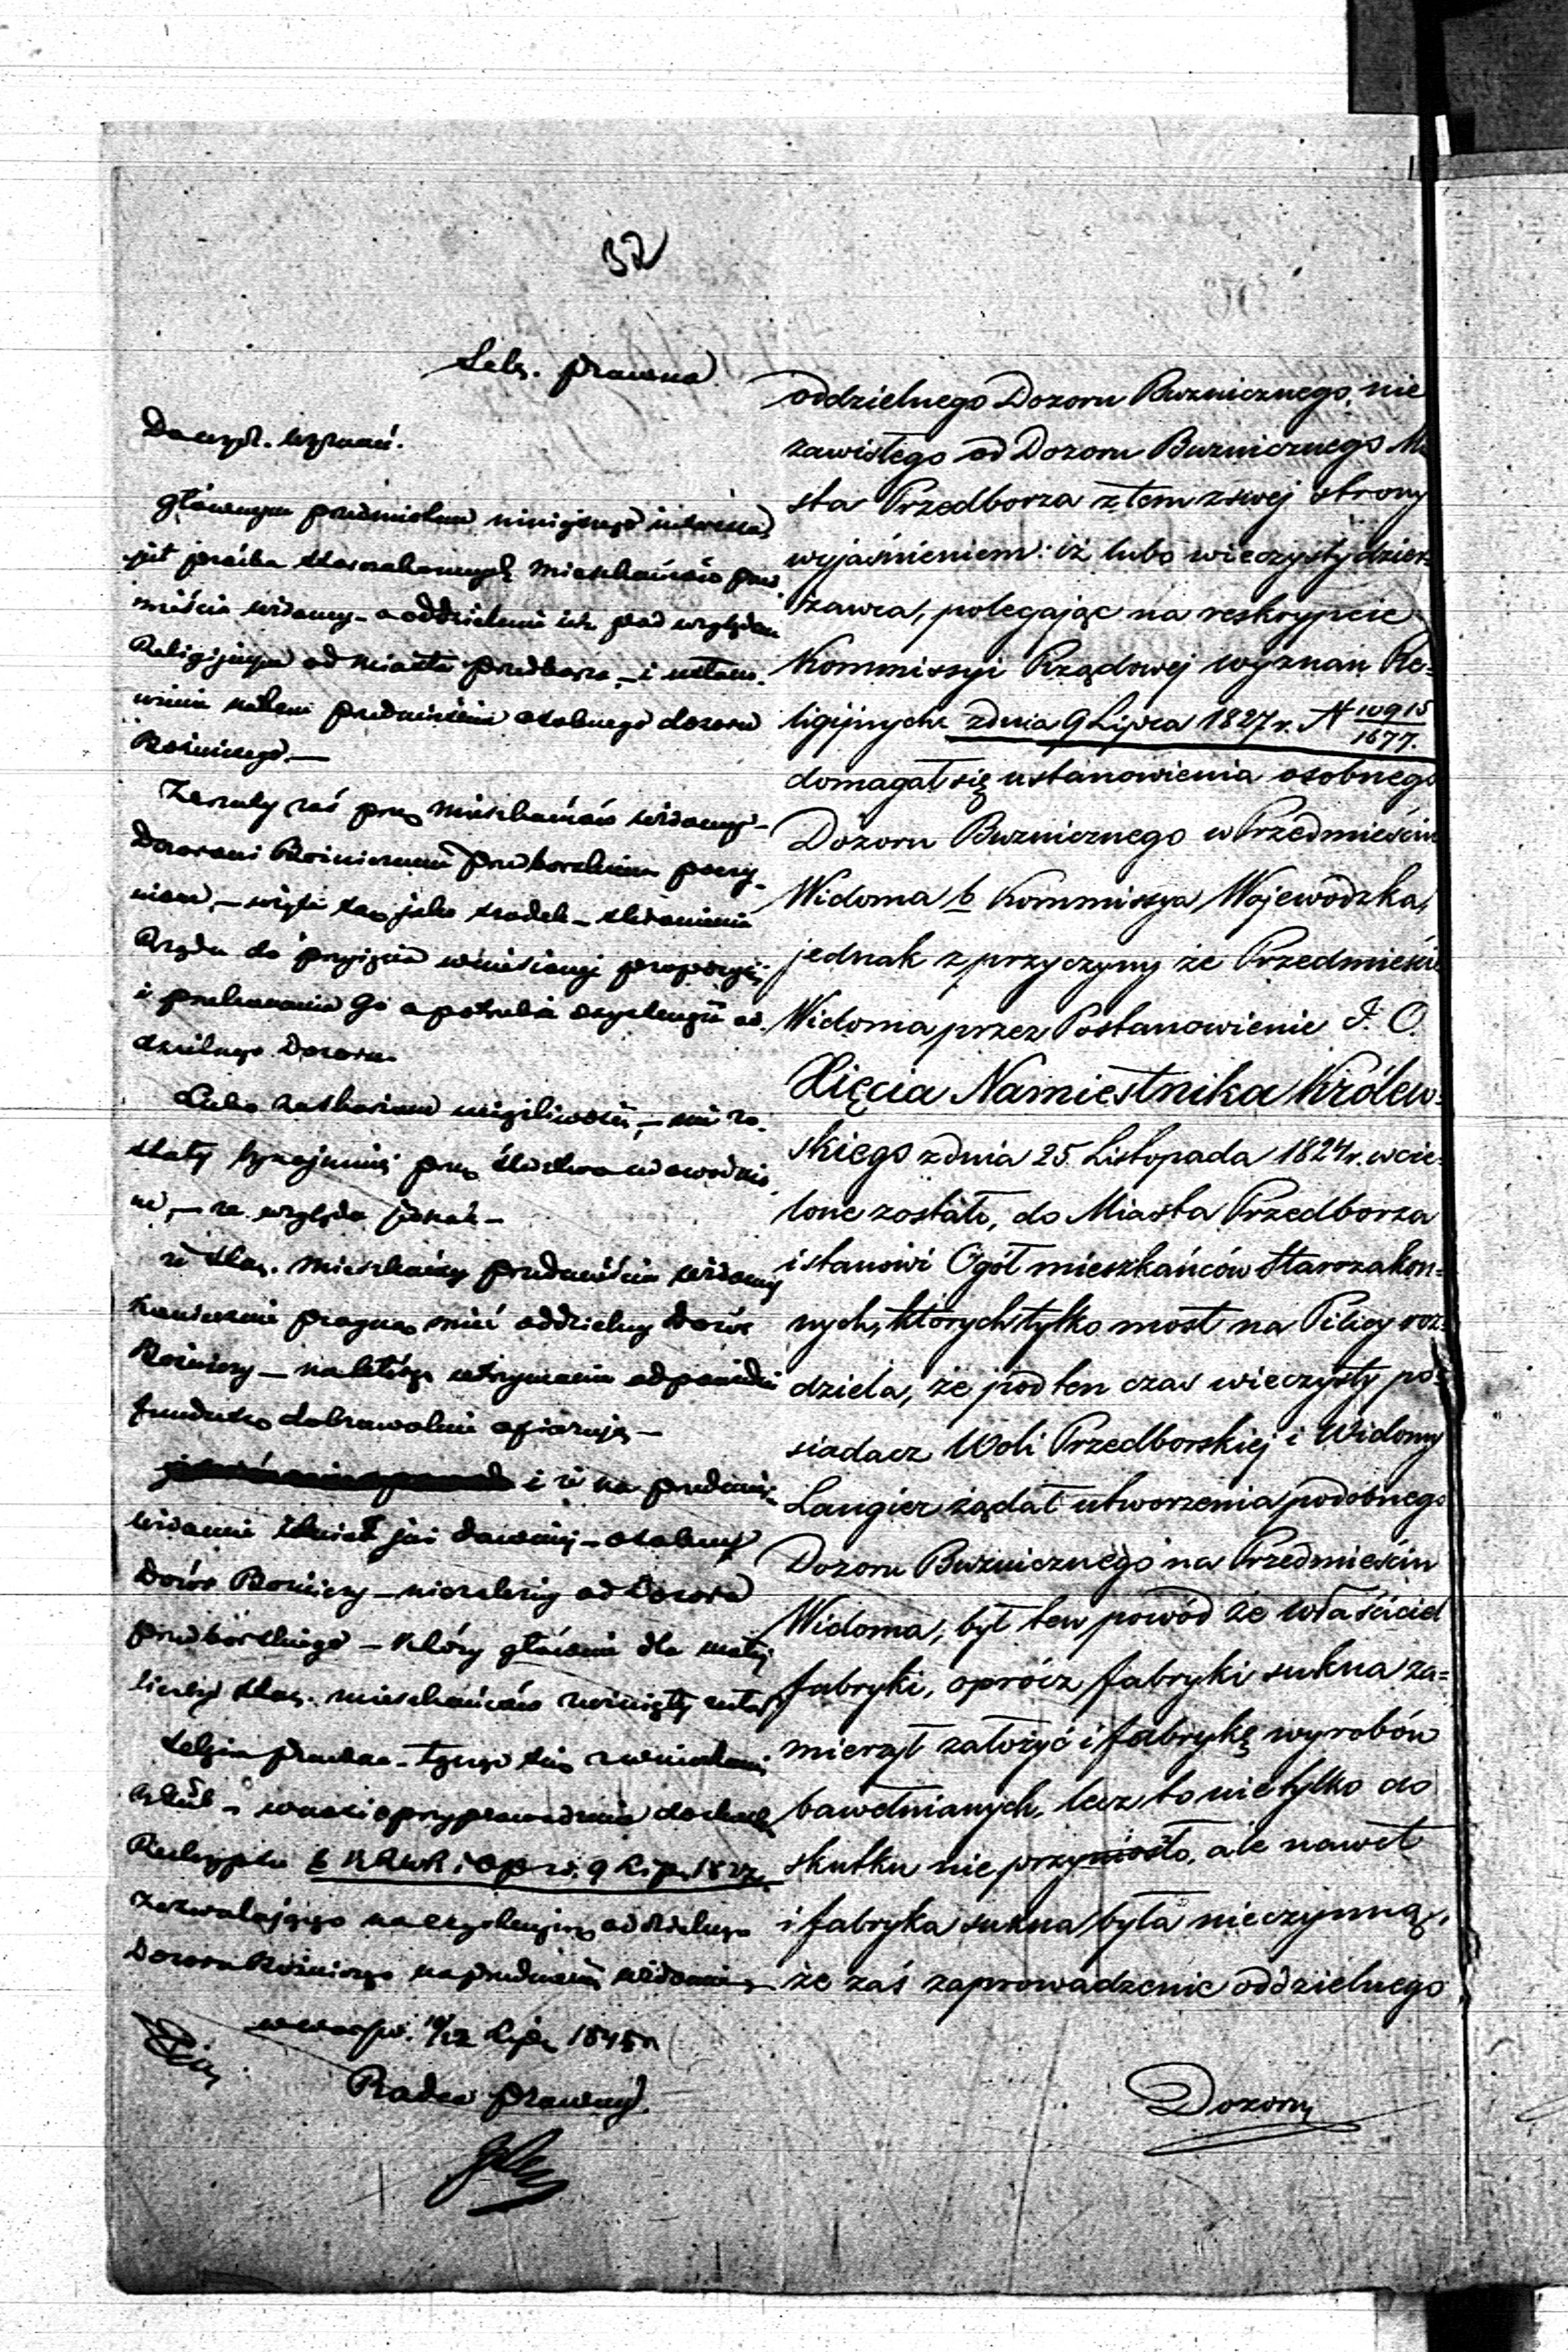 32
Sekc. prawna
Do wydz. wyznań.
Głównym przedmiotem niniejszego interessu
jest prośba starozakonnych mieszkańców przed-
mieścia Widomy - o oddzielenie ich pod względem
Religijnym od miasta Przedborza, - i ustano-
wienie na tem przedmieściu osobnego dozoru
Bożniczego. -
Zarzuty zaś przez mieszkańców Widomy -
Dozorowi Bożniczemu Przedborskiemu poczy-
nione, - użyte są jako środek - skłonienia
Rządu do przyjęcia wniesionej propozycji
i przekonania go o potrzebie exystencji od-
dzielnego Dozoru.
Lubo zaskarżone uciążliwości, - nie zo-
stały bynajmniej przez śledztwo udowodnio-
ne, - ze względu jednak -
że star. mieszkańcy przedmieścia Widomy
koniecznie pragną mieć oddzielny Dozór
Bożniczy - na którego utrzymanie odpowiedni
fundusz dobrowolnie ofiarują, -
i że na przedmieściu
Widomie istniał już dawniej - osobny
Dozór Bożniczy - niezależny od Dozoru
Przedborskiego - który głównie dla małej
liczby star. mieszkańców zwinięty został
Sekcja prawna - zgodnie
wnosi o przyprowadzenie do skutku
Reskryptu b. KRWR i OP z d. 9 Lip. 1827,
zezwalającego na exystencją oddzielnego
Dozoru Bożniczego na przedmieściu Widomie
w Warsz. d. 10/22 Lipca 1845 r.
Radca Prawny
oddzielnego Dozoru Buzniczego, nie
zawisłego od Dozoru Buzniczego Mia
sta Przedborza z tem z swej strony
wyjaśnieniem: iż lubo wieczysty dzier
żawca, polegając na reskrypcie
Kommissyi Rządowej wyznań Re=
ligijnych z dnia 9 Lipca 1827 r. N 10915/1677.
domagał się ustanowienia osobnego
Dozoru Buznicznego w Przedmieściu
Widoma b. Kommissya Wojewódzka,
jednak z przyczyny że Przedmieście
Widoma przez Postanowienie J. O.
Xięcia Namiestnika Królew=
skiego z dnia 25 Listopada 1824 r. wcie=
lone zostało, do Miasta Przedborza
i stanowi Ogół mieszkańców Starozakon=
nych, których tylko most na Pilicy roz=
dziela, że pod ten czas wieczysty po=
siadacz Woli Przedborskiej i Widomy
Laugier żądał utworzenia podobnego
Dozoru Buznicznego na Przedmieściu
Widoma, był ten powód że właściciel
fabryki, oprócz fabryki sukna za=
mierzył założyć i fabrykę wyrobów
bawełnianych, lecz to nie tylko do
skutku nie przyniosło, ale nawet
i fabryka sukna była nieczynną,
że zaś zaprowadzenie oddzielnego
Dozoru